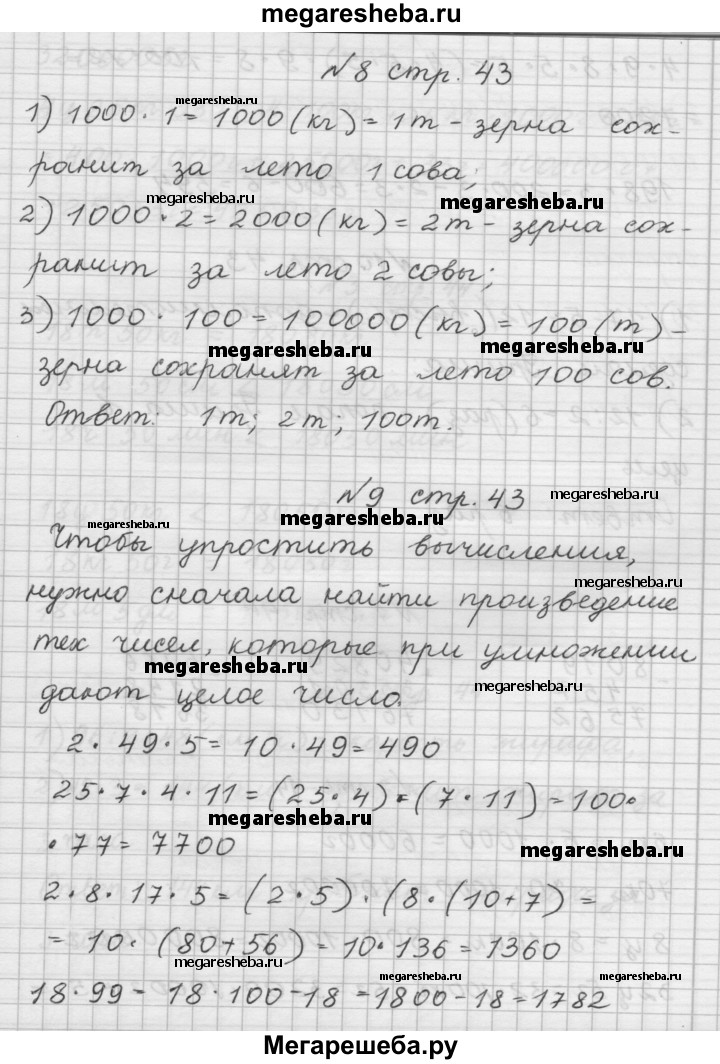 megaresheba.ru
№8 стр. 43
megaresheba.ru
1) 1000 · 1 = 1000 (кг) = 1т - зерна сох-
ранит за лето 1 сова;
megaresheba.ru
megaresheba.ru
2) 1000 · 2 = 2000 (кг) = 2т - зерна сох-
ранит за лето 2 совы;
3) 1000 · 100 = 100000 (кг) = 100 (т) -
megaresheba.ru
megaresheba.ru
зерна сохранят за лето 100 сов.
Ответ: 1т; 2т; 100т.
№9 стр. 43
megaresheba.ru
megaresheba.ru
megaresheba.ru
Чтобы упростить вычисления,
megaresheba.ru
нужно сначала найти произведение
тех чисел, которые при умножении
megaresheba.ru
megaresheba.ru
дают целое число.
2 · 49 · 5 = 10 · 49 = 490
25 · 7 · 4 · 11 = (25 · 4) · (7 · 11) = 100 ·
megaresheba.ru
· 77 = 7700
megaresheba.ru
2 · 8 · 17 · 5 = (2 · 5) · (8 · (10 + 7) =
= 10 · (80 + 56) = 10 · 136 = 1360
megaresheba.ru
megaresheba.ru
megaresheba.ru
18 · 99 = 18 · 100 - 18 = 1800 - 18 = 1782
Мегарешеба.ру